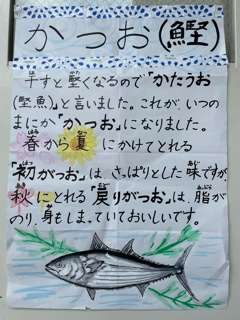 かつお(鰹)
干すと堅くなるので「かたうお
(堅魚)」と言いました。これが、いつの
まにか「かつお」になりました。
春から夏にかけてとれる
「初がつお」は さっぱりとした味ですが、
秋にとれる「戻りがつお」は、脂が
のり、身もしまっていておいしいです。